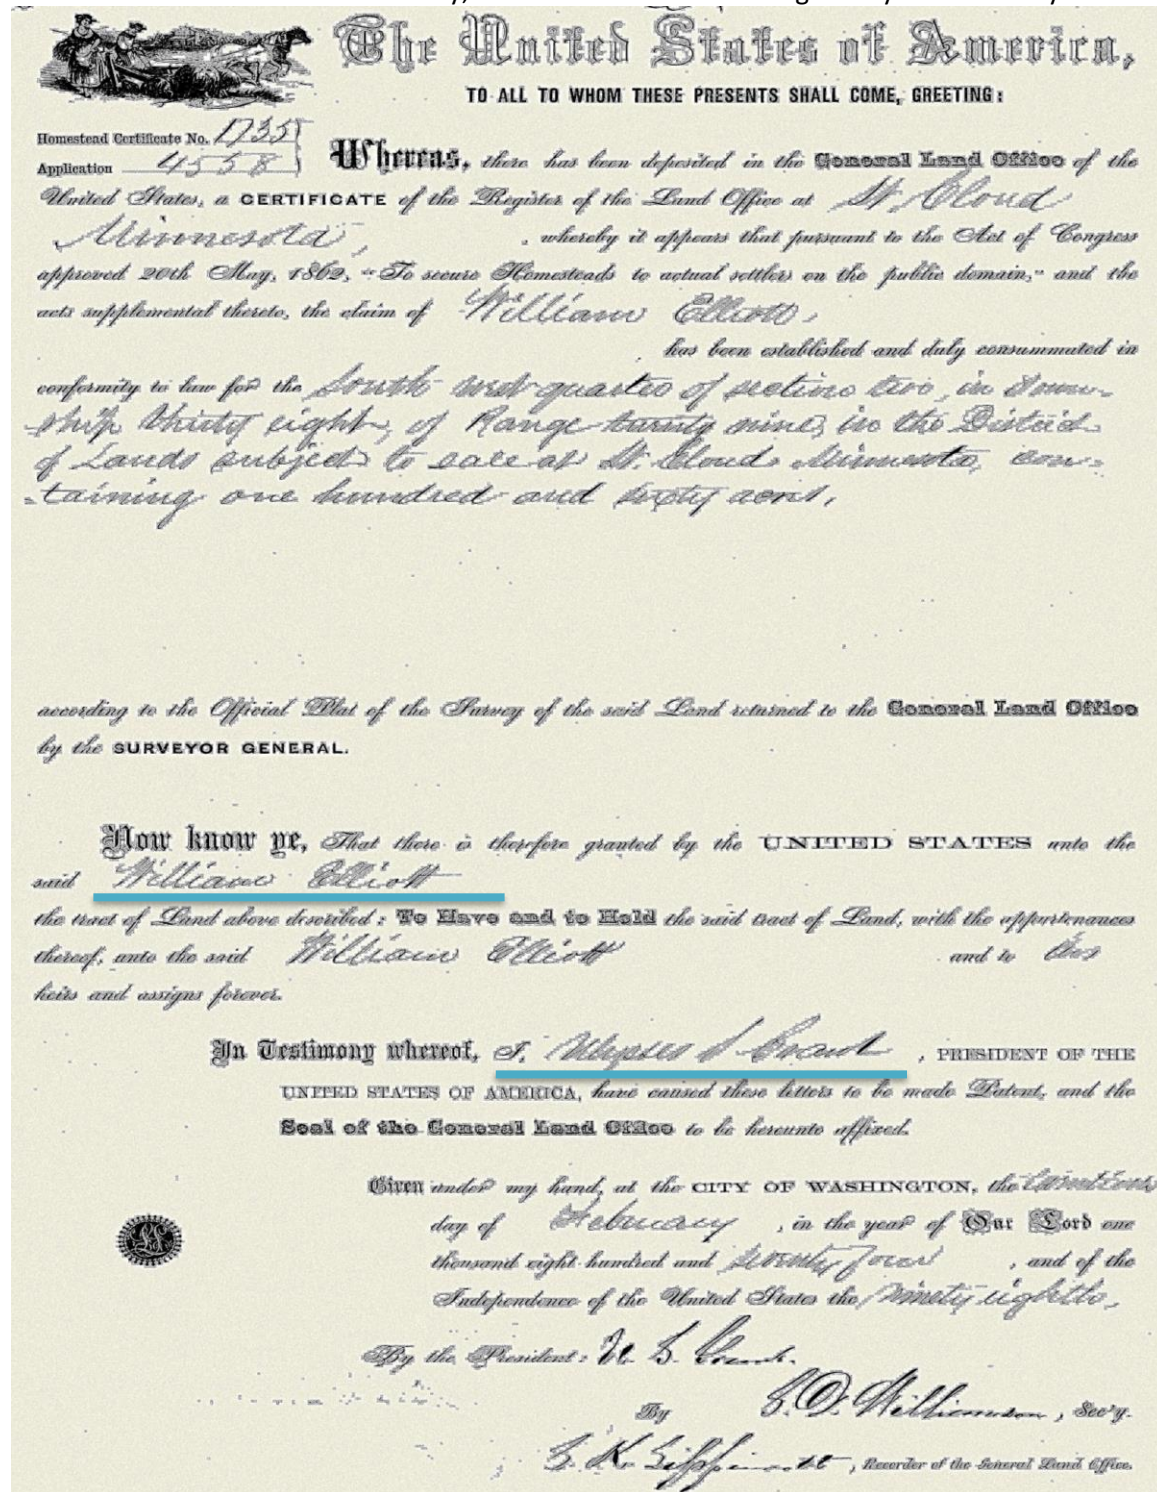 The United States of America,
TO ALL TO WHOM THESE PRESENTS SHALL COME, GREETING:
Homestead Certificate No. 1735
Application 4558
Whereas, there has been deposited in the General Land Office of the
United States, a CERTIFICATE of the Register of the Land Office at St. Cloud
Minnesota, , whereby it appears that pursuant to the Act of Congress
approved 20th May, 1862, "To secure Homesteads to actual settlers on the public domain," and the
acts supplemental thereto, the claim of William Elliott,
has been established and duly consummated in
conformity to law for the South west quarter of section two, in Town-
-ship thirty eight, of Range twenty nine, in the District
of Lands subject to sale at St. Cloud Minnesota, con-
-taining one hundred and sixty acres,
according to the Official Plat of the Survey of the said Land returned to the General Land Office
by the SURVEYOR GENERAL.
Now know ye, That there is therefore granted by the UNITED STATES unto the
said William Elliott
the tract of Land above described: To Have and to Hold the said tract of Land, with the appurtenances
thereof, unto the said William Elliott and to his
heirs and assigns forever.
In Testimony whereof, I, Ulysses S Grant , PRESIDENT OF THE
UNITED STATES OF AMERICA, have caused these letters to be made Patent, and the
Seal of the General Land Office to be hereunto affixed.
Given under my hand, at the CITY OF WASHINGTON, the
day of February , in the year of Our Lord one
thousand eight hundred and seventy four , and of the
Independence of the United States the ninety eighth,
By the President: U. S. Grant.
By S. D. Williamson, Sec'y.
Recorder of the General Land Office.